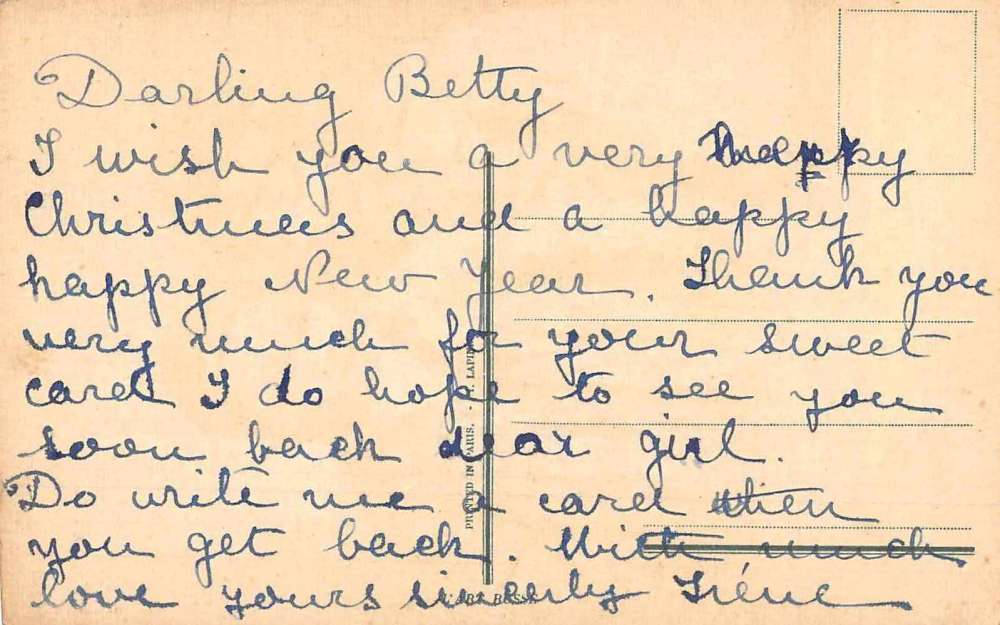 Darling Betty
I wish you a very happy
Christmas and a happy
happy New Year. Thank you
very much for your sweet
card I do hope to see you
soon back dear girl.
Do write me a card then
you get back. With much
love yours sincerly Iréne
PRINTED IN PARIS. - LAPIN
L'ART RUSSE